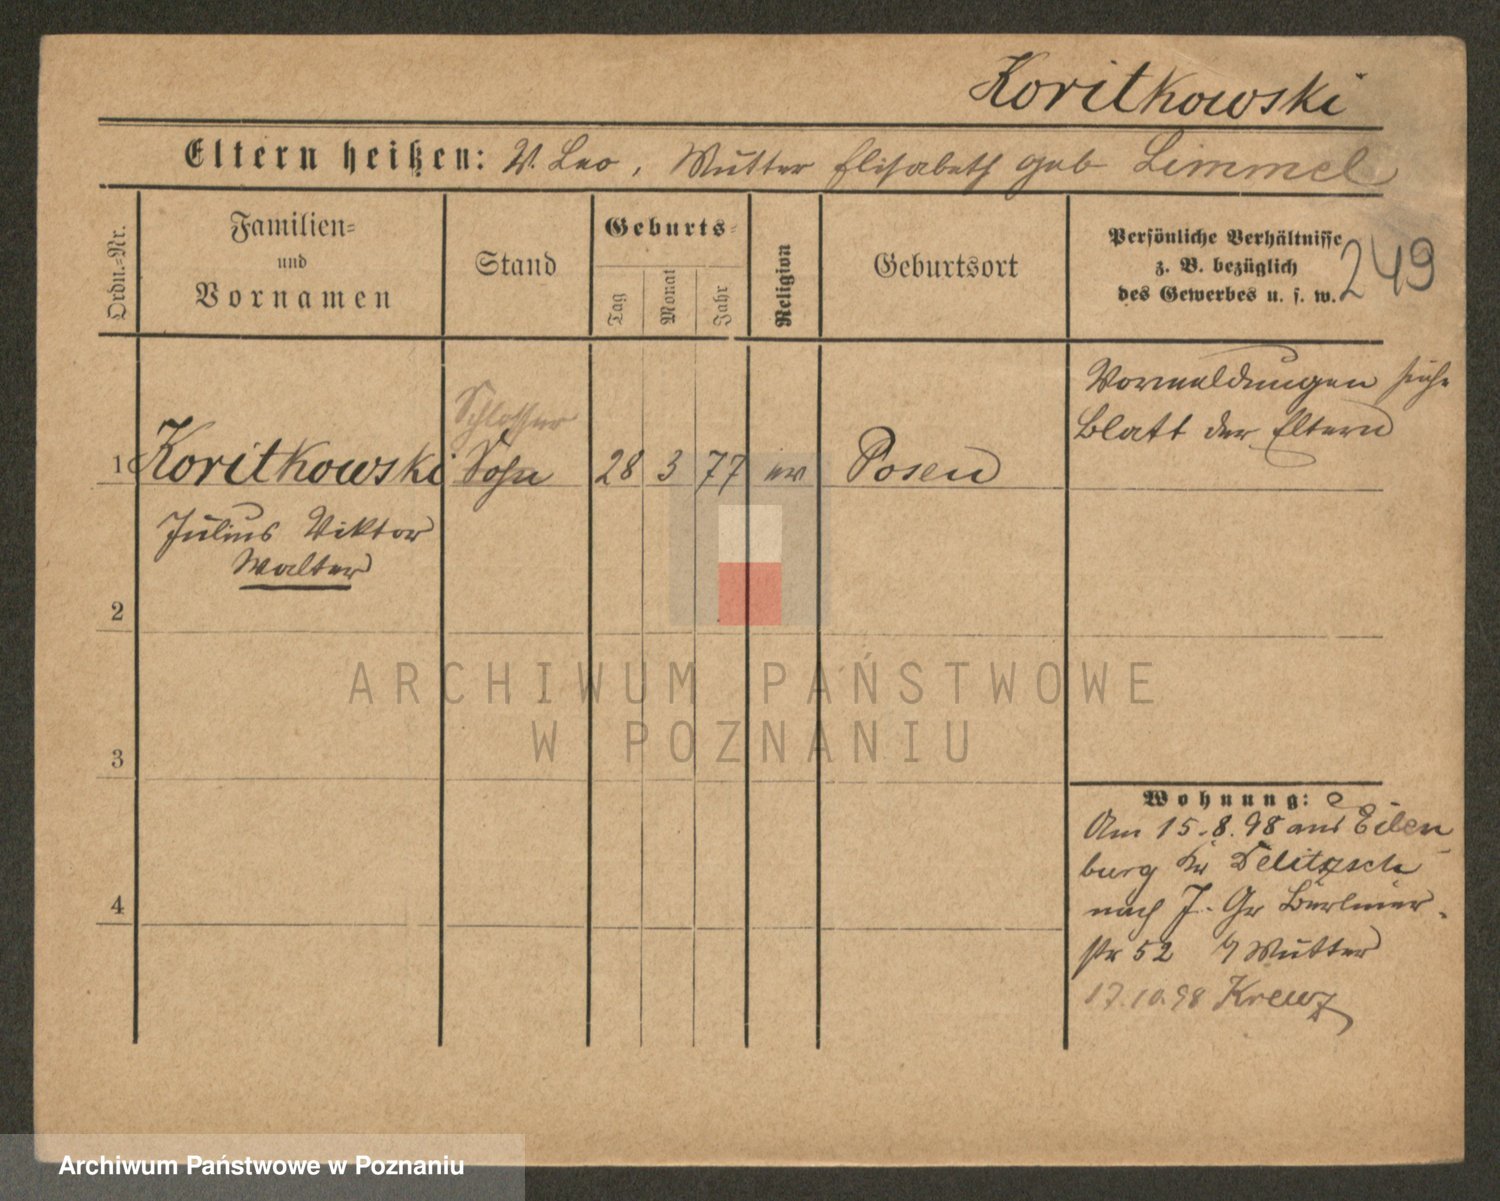 Koritkowski
Eltern heißen: V. Leo, Mutter Elisabeth geb Limmel
Ordn.-Nr.
Familien- und Vornamen
Stand
Geburts-
Tag
Monat
Jahr
Religion
Geburtsort
Persönliche Verhältnisse
z. B. bezüglich
des Gewerbes u. s. w.
249
Vormeldungen siehe
Blatt der Eltern
Schlosser
1 Koritkowski Sohn 28 3 77 ev Posen
Julius Viktor
Walter
2
3
4
Wohnung:
Am 15.8.98 aus Eilen
burg Kr Delitzsch
nach J. Gr Berliner-
str 52 Mutter
17.10.98 Kreuz
ARCHIWUM PAŃSTWOWE
W POZNANIU
Archiwum Państwowe w Poznaniu